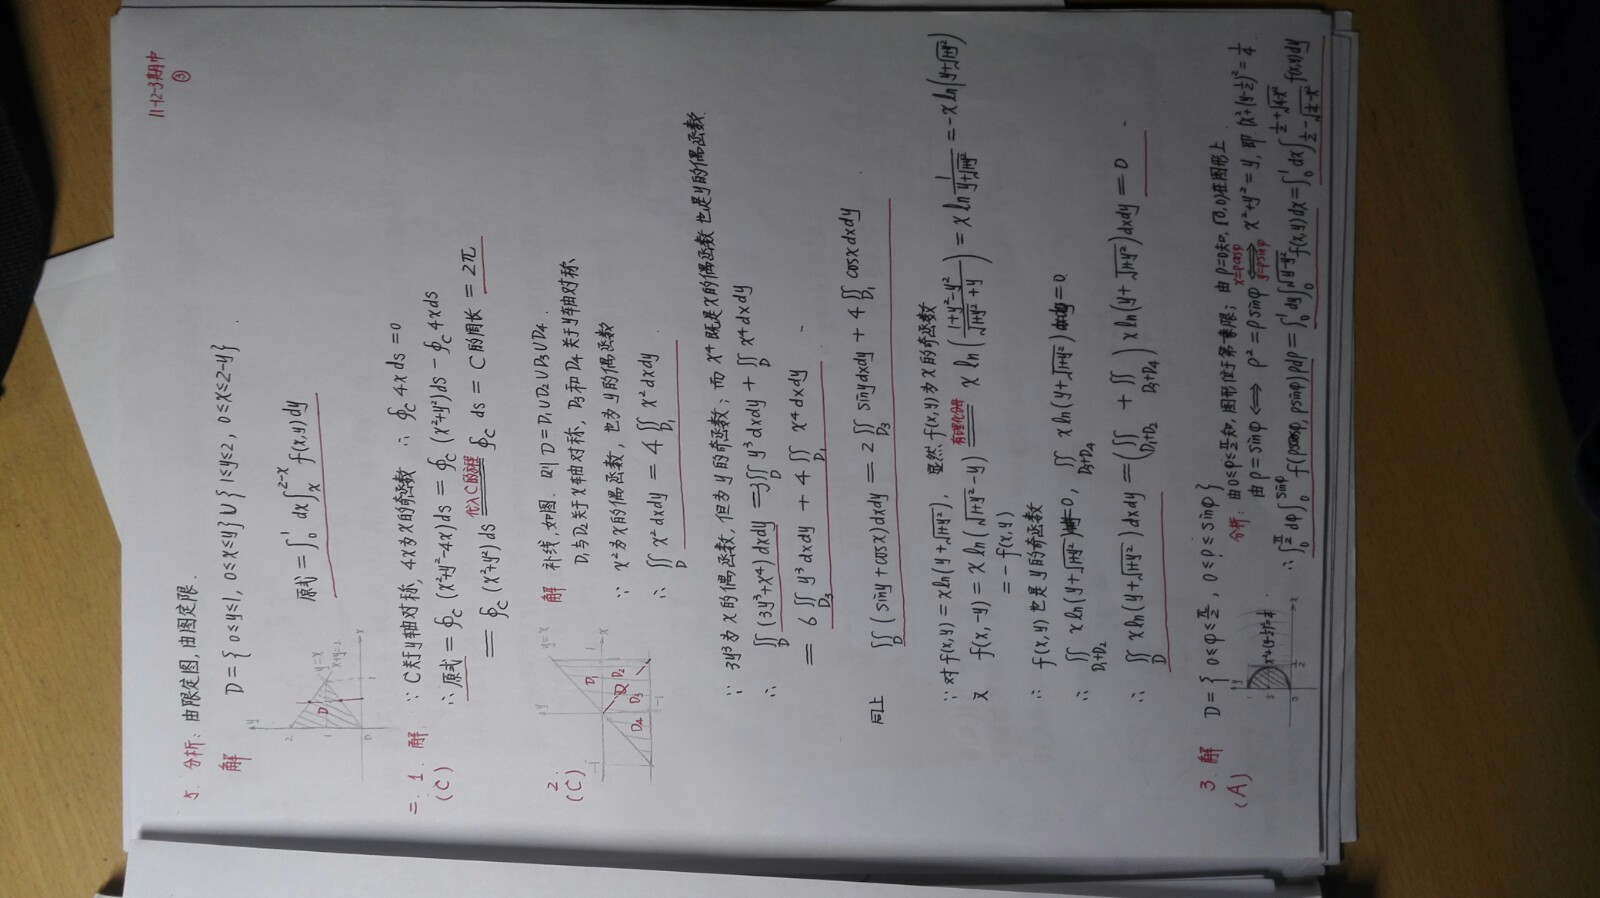 11-12-3期中
③
5. 分析：由限定图，由图定限.
解 D={0≤y≤1, 0≤x≤y}∪{1≤y≤2, 0≤x≤2-y}.
y
2
1
D
y=x
x+y=2
0
1
x
原式=∫₀¹dx∫ₓ^{2-x}f(x,y)dy
二.1.解 ∵C关于y轴对称, 4x为x的奇函数 ∴∮_C 4xds=0
(C) ∴原式=∮_C(x²+y²-4x)ds=∮_C(x²+y²)ds-∮_C 4xds
=∮_C(x²+y²)ds = ∮_C ds=C的周长=2π
2. 解 补线,如图. 则D=D₁∪D₂∪D₃∪D₄.
(C) D₁与D₂关于x轴对称, D₃和D₄关于y轴对称.
y
y=x
D₁
D₂
D₃
D₄
x
1
-1
-1
∵x²为x的偶函数,也为y的偶函数
∴∬_D x²dxdy=4∬_{D₁}x²dxdy
∵3y³为x的偶函数,但为y的奇函数；而x⁴既是x的偶函数也是y的偶函数
∴∬_D(3y³+x⁴)dxdy=3∬_D y³dxdy+∬_D x⁴dxdy
=6∬_{D₃}y³dxdy+4∬_{D₁}x⁴dxdy.
同上 ∬_D(siny+cosx)dxdy=2∬_{D₃}sinydxdy+4∬_{D₁}cosxdxdy
∵对f(x,y)=xln(y+√(1+y²)), 显然f(x,y)为x的奇函数
又 f(x,-y)=xln(√(1+y²)-y) 有理化分母 = xln((1+y²-y²)/(√(1+y²)+y))=xln(1/(y+√(1+y²)))=-xln(y+√(1+y²))
=-f(x,y)
∴f(x,y)也是y的奇函数
∴∬_{D₁+D₂}xln(y+√(1+y²))=0, ∬_{D₃+D₄}xln(y+√(1+y²))dxdy=0.
∴∬_D xln(y+√(1+y²))dxdy=(∬_{D₁+D₂}+∬_{D₃+D₄})xln(y+√(1+y²))dxdy=0.
3.解 D={0≤φ≤π/2, 0≤ρ≤sinφ}
(A) 分析：由0≤φ≤π/2知,图形位于第一象限；由ρ=0知,(0,0)在图形上
由ρ=sinφ⟺ρ²=ρsinφ ⟺ x=ρcosφ y=ρsinφ x²+y²=y, 即(x²+(y-½)²=¼
y
x
0
∴∫₀^{π/2}dφ∫₀^{sinφ}f(ρcosφ,ρsinφ)ρdρ=∫₀¹dy∫₀^{√(y-y²)}f(x,y)dx=∫₀¹dx∫_{½-√(¼-x²)}^{½+√(¼-x²)}f(x,y)dy